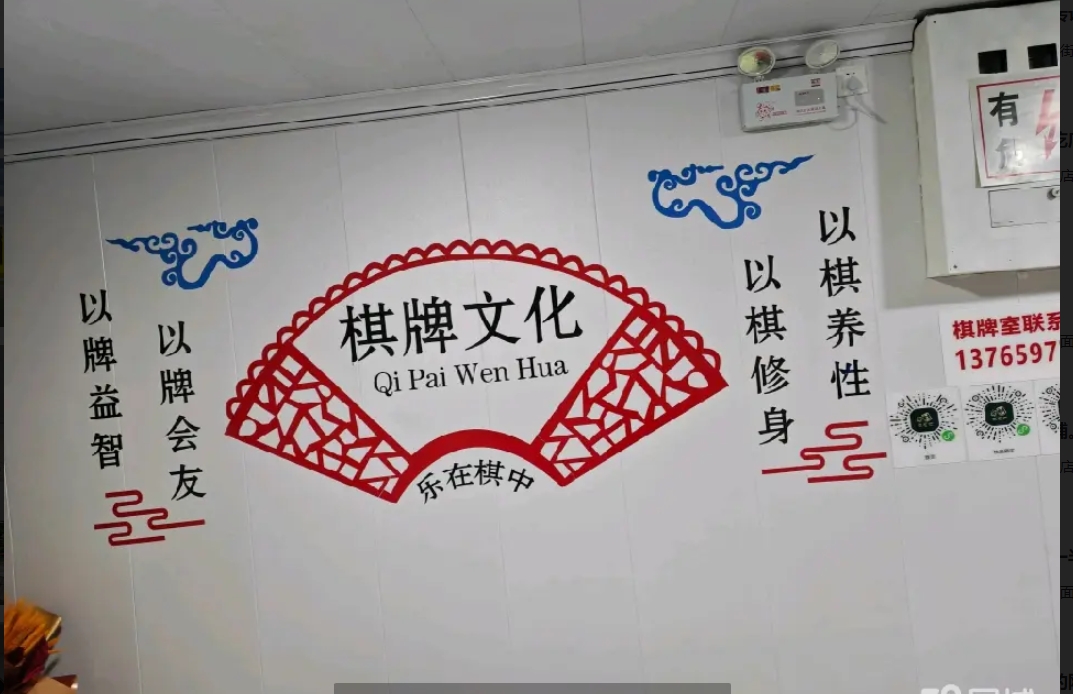 棋牌文化
Qi Pai Wen Hua
乐在棋中
以牌益智
以牌会友
以棋修身
以棋养性
有
棋牌室联系
1376597